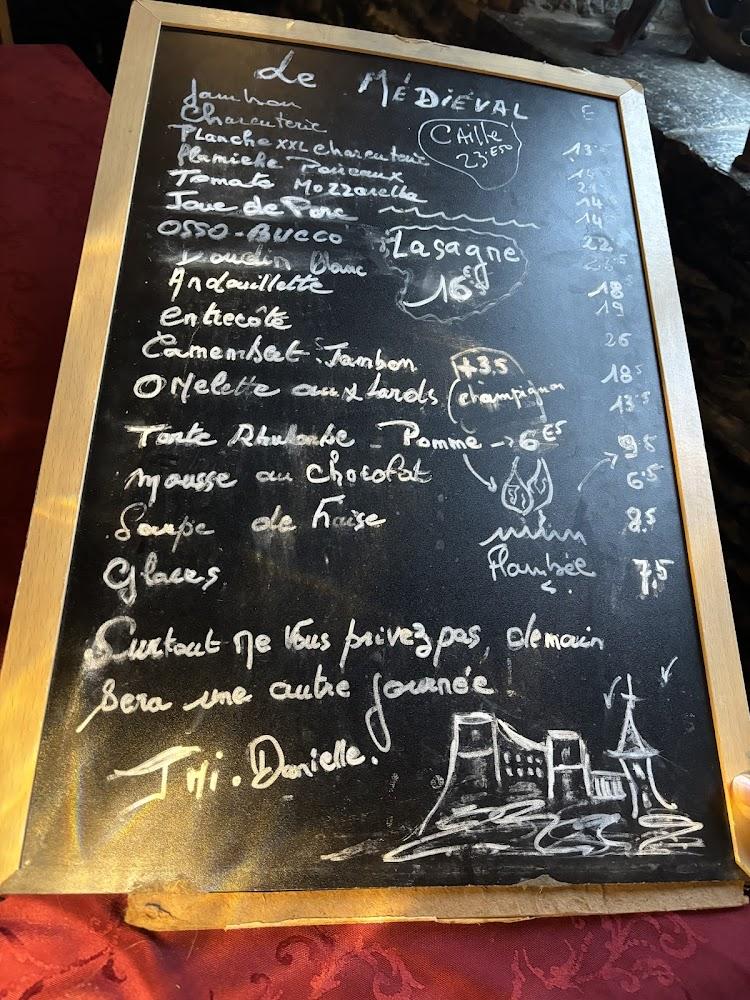 de MÉDIÉVAL
Jambon
Charcuterie
CAille
23.E50
Planche XXL Charcuterie 13.5
Flamiche Poireaux
Tomate Mozzarella 14
Joue de Porc 14
OSSO-BUCCO 22
Lasagne
16
Boudin Blanc
Andouillette 18
19
entrecôte 26
Camembert Jambon 18.5
+3.5
champignon
OMelette aux Lards 13.5
Tarte Rhubarbe - Pomme -> 6 E5 9.5
Mousse au Chocolat 6.5
Soupe de fraise 8.5
Flambée
Glaces 7.5
Surtout ne Vous privez pas, demain
Sera une autre journée
JMi. Danielle.